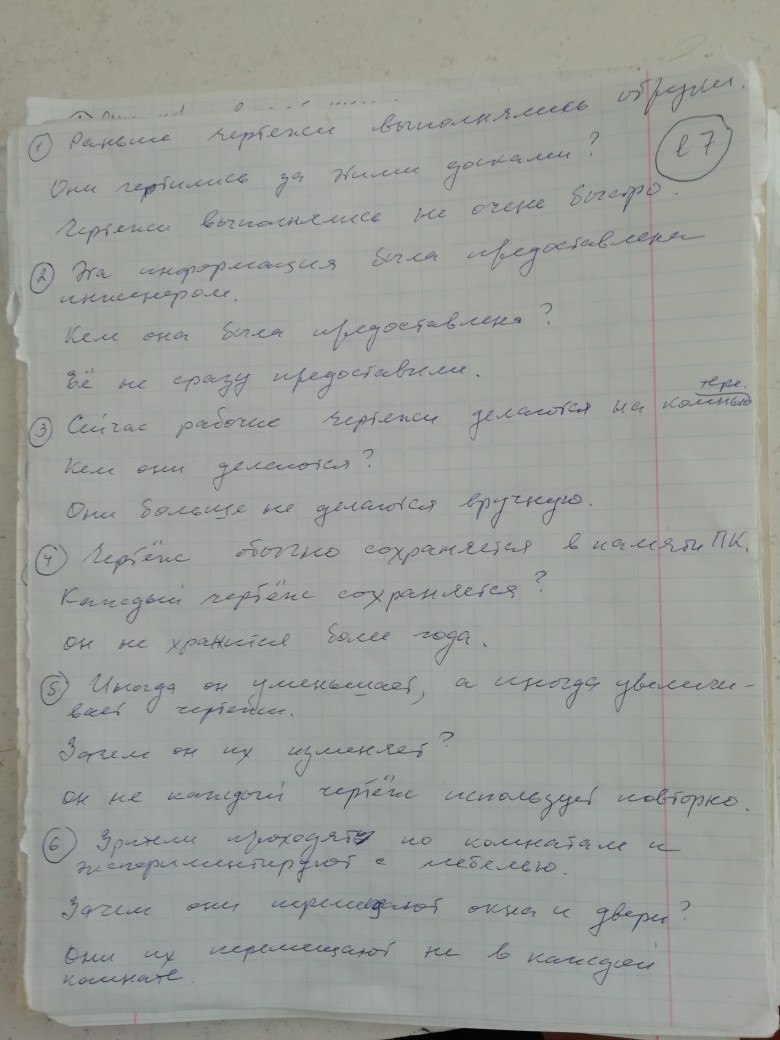 ① Раньше чертежи выполнялись вручную.
27
Они чертились за этими досками?
Чертежи выполнялись не очень быстро.
② Эта информация была предоставлена
инженером.
Кем она была предоставлена?
Её не сразу предоставили.
③ Сейчас рабочие чертежи делаются на компью
тере.
Кем они делаются?
Они больше не делаются вручную.
④ Чертёж обычно сохраняется в памяти ПК.
Каждый чертёж сохраняется?
он не хранится более года.
⑤ Иногда он уменьшает, а иногда увеличи-
вает чертежи.
Зачем он их изменяет?
он не каждый чертёж использует повторно.
⑥ Зрители проходят по комнатам и
экспериментируют с мебелью.
Зачем они перемещают окна и двери?
Они их перемещают не в каждой
комнате.